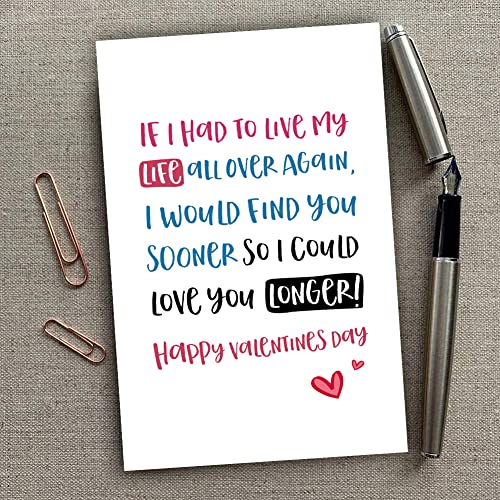 IF I HAD TO LIVE MY
LIFE ALL OVER AGAIN,
I WOULD FIND YOU
SOONER SO I COULD
LOVE YOU LONGER!
HAPPY VALENTINES DAY